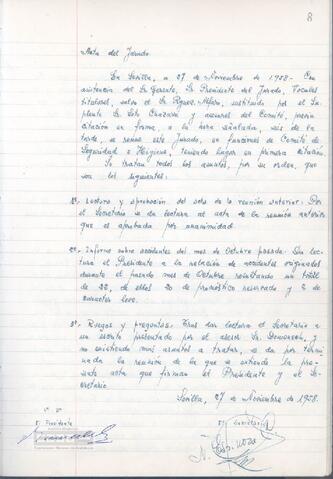 8
Acta del Jurado
En Sevilla, a 27 de Noviembre de 1958.- Con
asistencia del Sr Gerente, Sr Presidente del Jurado, Vocales
titulares, salvo el Sr Rguez. Alfaro, sustituido por el Su-
plente Sr Soto and asesores del Comité, previa
citación en forma, a la hora señalada, seis de la
tarde, se reune este Jurado, en funciones de Comité de
Seguridad e Higiene, teniendo lugar en primera citación.
Se tratan todos los asuntos, por su orden, que
son los siguientes:
1º.- Lectura y aprobación del acta de la reunión anterior: Por
el Secretario se da lectura al acta de la reunión anterior
que es aprobada por unanimidad.
2º.- Informe sobre accidentes del mes de Octubre pasado: Da lec-
tura el Presidente a la relación de accidentes originados
durante el pasado mes de Octubre resultando un total
de 22, de ellos 20 de pronóstico reservado y 2 de
caracter leve.
3º.- Ruegos y preguntas: Tras dar lectura el Secretario a
un escrito presentado por el asesor Sr y
no existiendo más asuntos a tratar, se da por termi-
nada la reunión de la que se extiende la pre-
sente acta que firman el Presidente y el Se-
cretario.
Sevilla, 27 de Noviembre de 1958.
Vº Bº
El Presidente
El Secretario